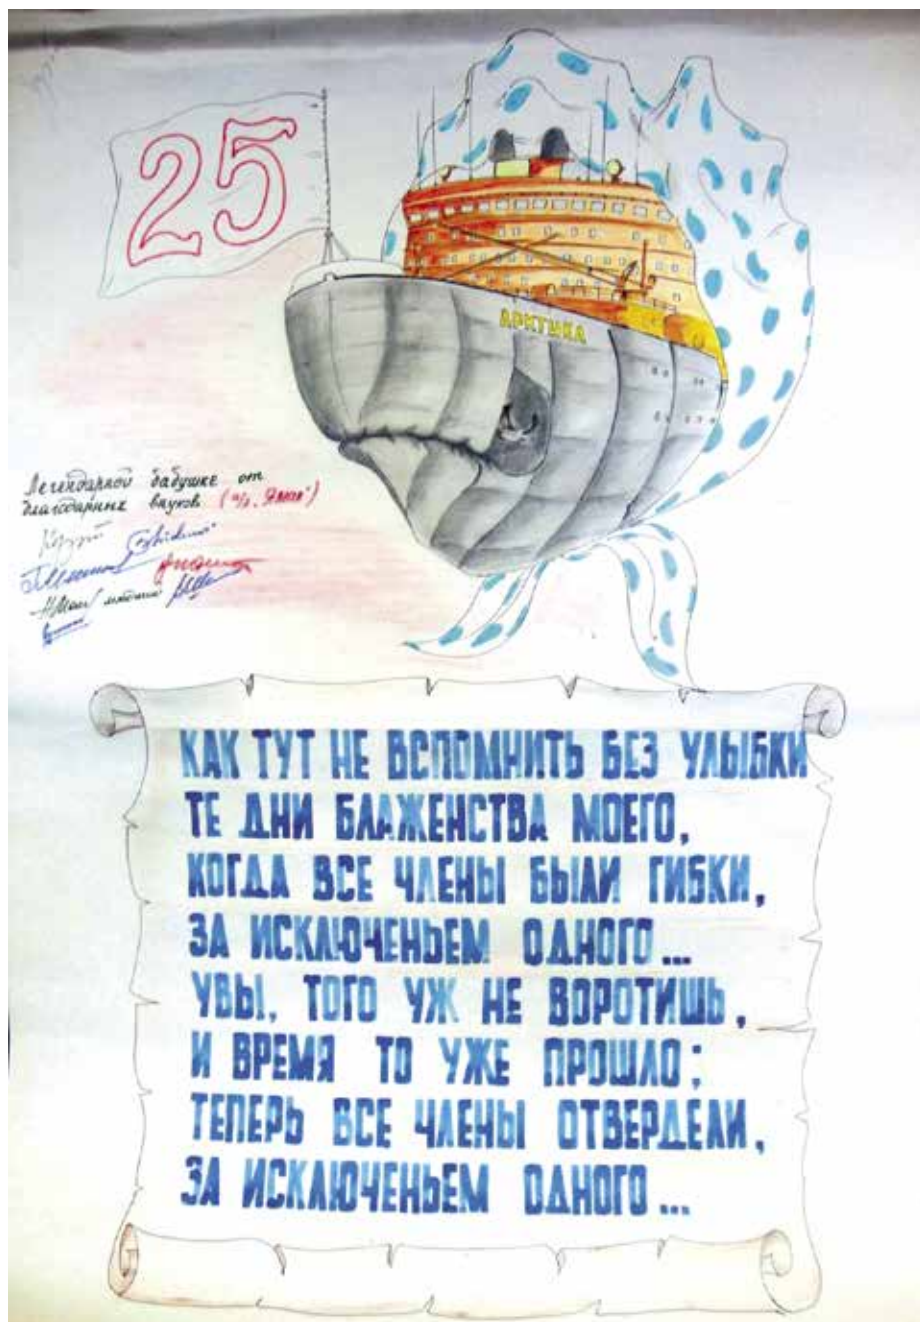 25
АРКТИКА
Легендарной бабушке от
благодарных внуков (а/л „Ямал")
КАК ТУТ НЕ ВСПОМНИТЬ БЕЗ УЛЫБКИ
ТЕ ДНИ БЛАЖЕНСТВА МОЕГО,
КОГДА ВСЕ ЧЛЕНЫ БЫЛИ ГИБКИ,
ЗА ИСКЛЮЧЕНЬЕМ ОДНОГО...
УВЫ, ТОГО УЖ НЕ ВОРОТИШЬ,
И ВРЕМЯ ТО УЖЕ ПРОШЛО;
ТЕПЕРЬ ВСЕ ЧЛЕНЫ ОТВЕРДЕЛИ,
ЗА ИСКЛЮЧЕНЬЕМ ОДНОГО...